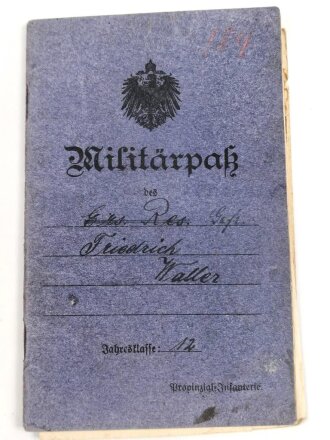 Militärpaß
des
Ers. Res. Gefr.
Friedrich
Waller
Jahresklasse: 12
Provinzial-Infanterie